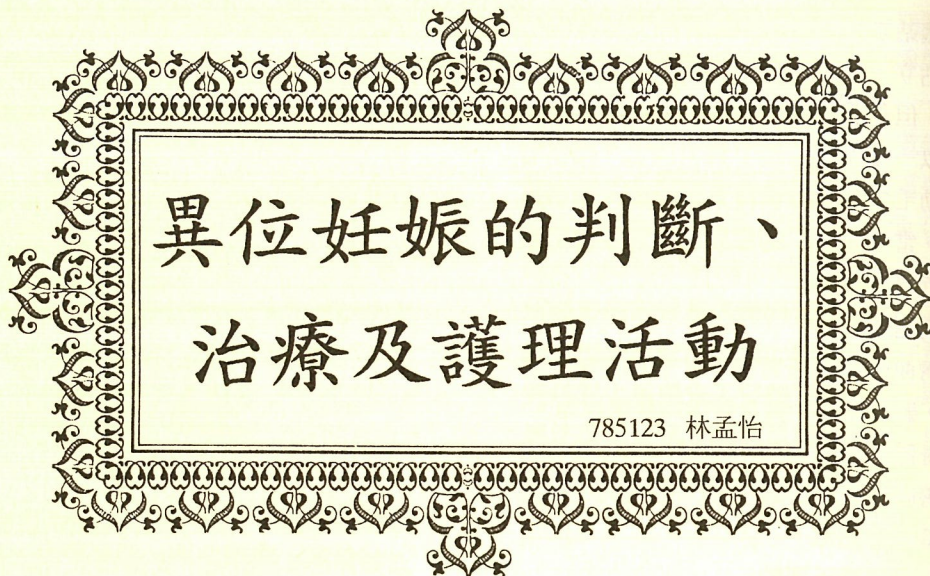 異位妊娠的判斷、
治療及護理活動
785123 林孟怡